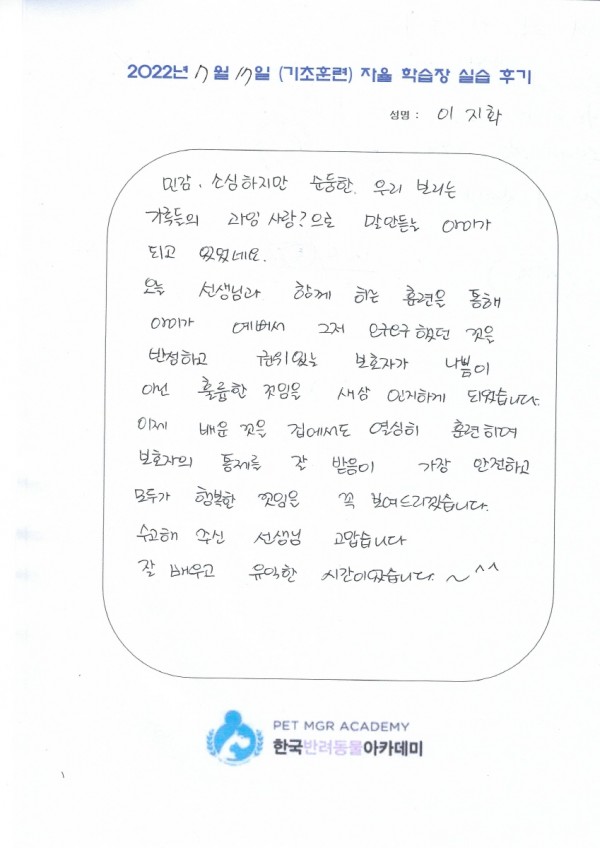 2022년 7월 17일 (기초훈련) 자율 학습장 실습 후기
성명 : 이지화
민감, 소심하지만 순둥한 우리 보리는
가족들의 과잉 사랑?으로 말안듣는 아이가
되고 있었네요.
오늘 선생님과 함께 하는 훈련을 통해
아이가 예뻐서 그저 우쭈쭈 했던 것을
반성하고 권위있는 보호자가 나쁨이
아닌 훌륭한 것임을 새삼 인지하게 되었습니다.
이제 배운 것을 집에서도 열심히 훈련하여
보호자의 통제를 잘 받음이 가장 안전하고
모두가 행복한 것임을 꼭 보여드리겠습니다.
수고해 주신 선생님 고맙습니다
잘 배우고 유익한 시간이었습니다. ~ ^^
PET MGR ACADEMY
한국반려동물아카데미